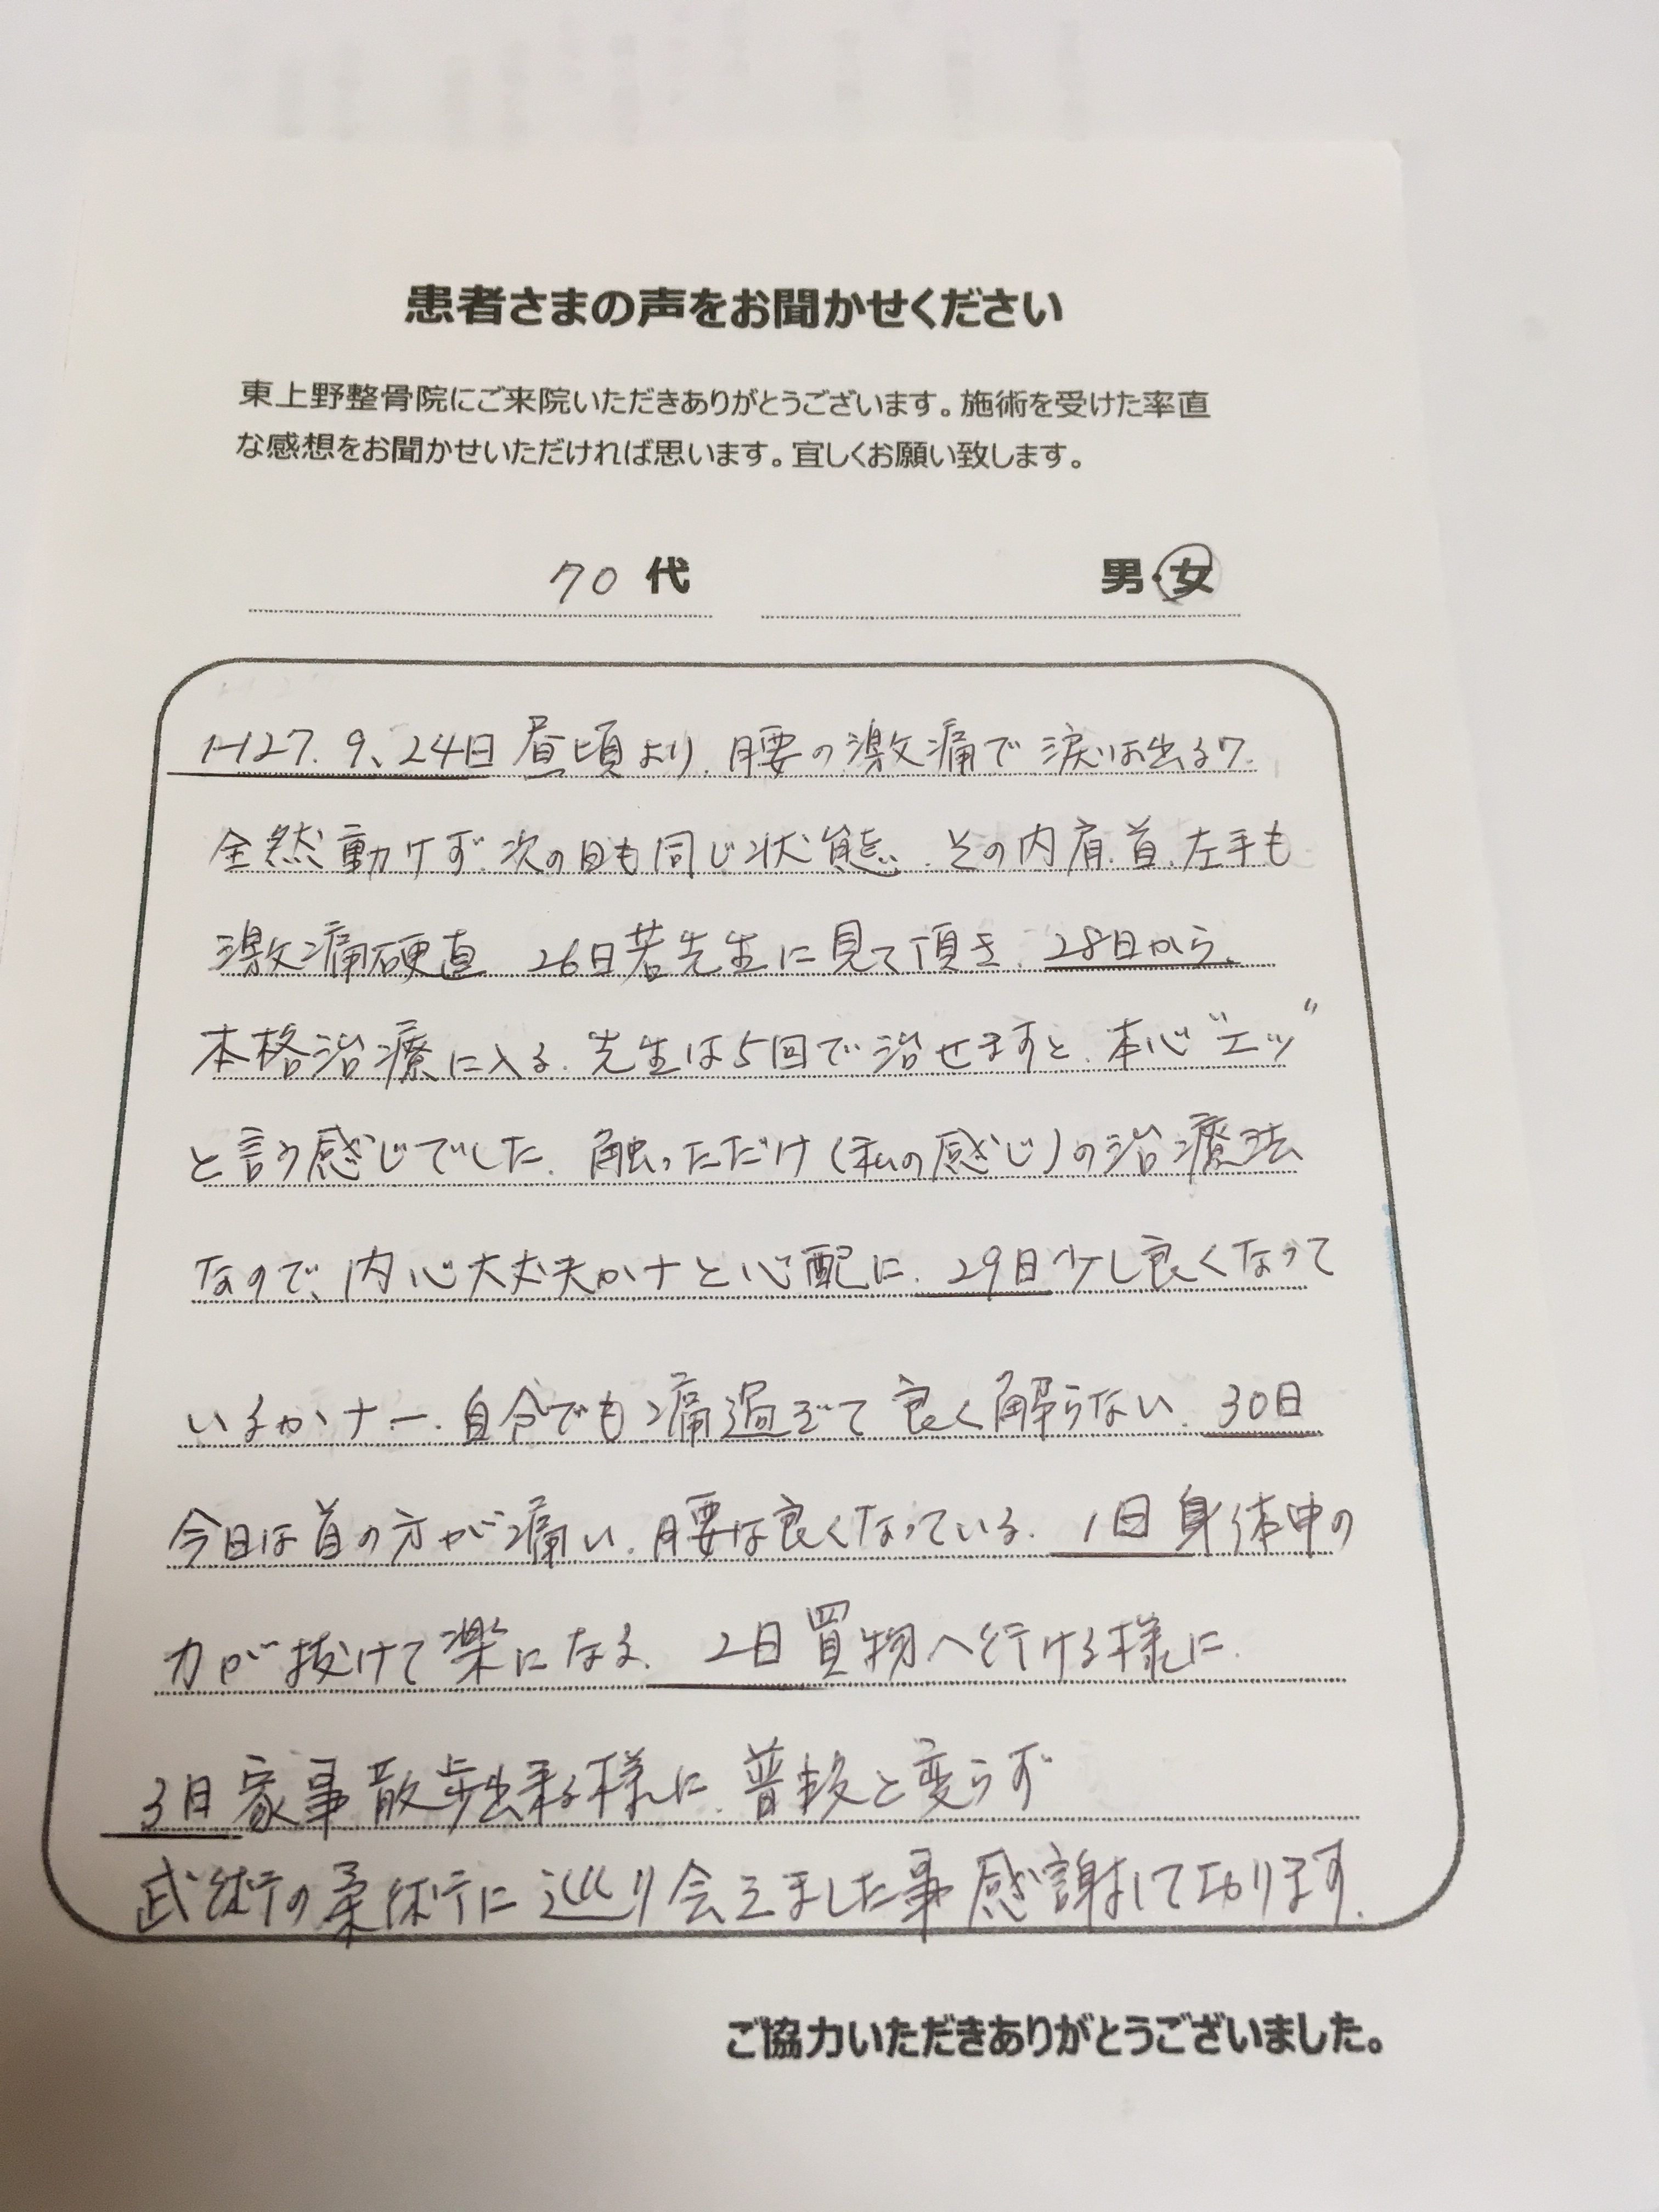 患者さまの声をお聞かせください
東上野整骨院にご来院いただきありがとうございます。施術を受けた率直
な感想をお聞かせいただければ思います。宜しくお願い致します。
70 代 男・女
H27.9、24日 昼頃より、腰の激痛で 涙は出る
全然動けず、次の日も同じ状態、その内肩、首、左手も
激痛硬直 26日若先生に見て頂き、28日から、
本格治療に入る、先生は5回で治せますと、本心“エッ”
と言う感じでした、触っただけ(私の感じ)の治療法
なので、内心大丈夫かナと心配に、29日少し良くなって
いるかナー、自分でも痛過ぎて良く解らない、30日
今日は首の方が痛い、腰は良くなっている、1日身体中の
力が抜けて楽になる、2日買物へ行ける様に、
3日家事散歩出来る様に、普段と変らず
武術の柔術に巡り会えました事感謝して居ります、
ご協力いただきありがとうございました。